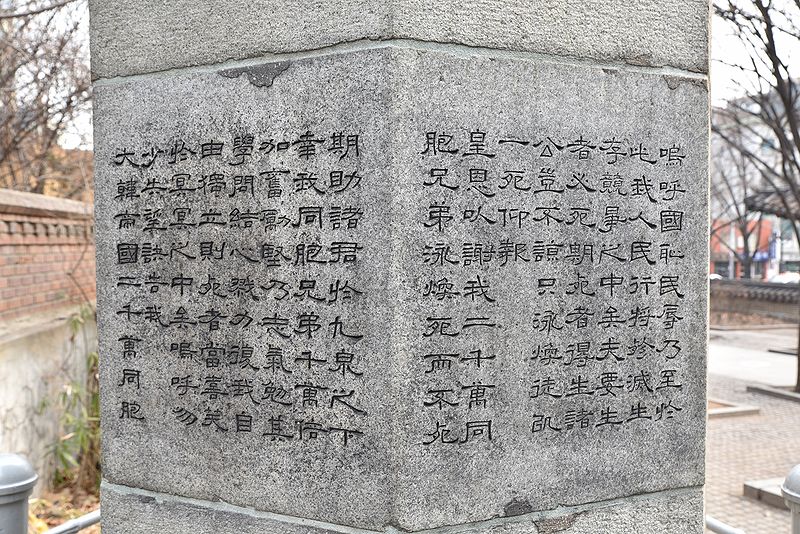 嗚呼國耻民辱乃至於
此我人民行將殄滅生
存競爭之中矣夫要生
者必死期死者得生諸
公豈不諒只泳煥徒以
一死仰報
皇恩以謝我二千萬同
胞兄弟泳煥死而不死
期助諸君於九泉之下
幸我同胞兄弟千萬倍
加奮勵堅乃志氣勉其
學問結心戮力復我自
由獨立則死者當喜笑
於冥冥之中矣嗚呼勿
少失望訣告我
大韓帝國二千萬同胞